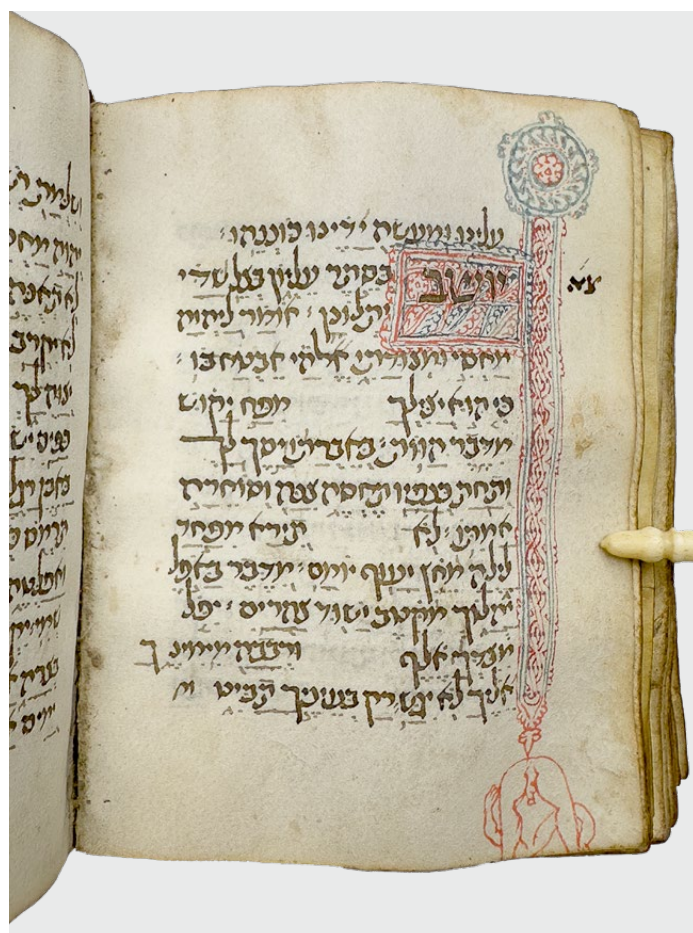 עלינו ומעשה ידינו כוננהו:
יושב בסתר עליון בצל שדי
צא
יתלונן: אומר ליהוה
מחסי ומצודתי אלהי אבטח בו:
כי הוא יצילך מפח יקוש
מדבר הוות: באברתו יסך לך
ותחת כנפיו תחסה צנה וסוחרה
אמתו: לא תירא מפחד
לילה מחץ יעוף יומם: מדבר באפל
יהלוך מקטב ישוד צהרים: יפל
מצדך אלף ורבבה מימינך
אליך לא יגש: רק בעיניך תביט
יהוה מחס
לא תאנה
לא יקרב
יצוה לך
כפים יש
באבן רגל
תרמס